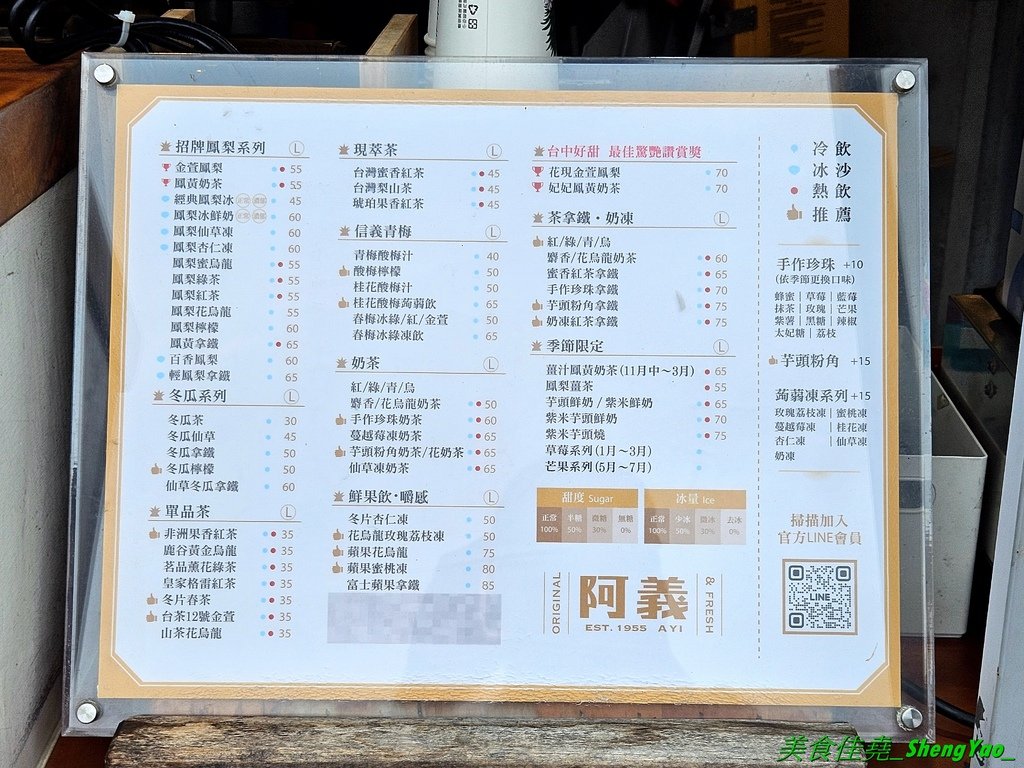 招牌鳳梨系列 Ⓛ
金萱鳳梨 55
鳳黃奶茶 55
經典鳳梨冰 正常 濃郁 45
鳳梨冰鮮奶 正常 濃郁 60
鳳梨仙草凍 60
鳳梨杏仁凍 60
鳳梨蜜烏龍 55
鳳梨綠茶 55
鳳梨紅茶 55
鳳梨花烏龍 55
鳳梨檸檬 60
鳳黃拿鐵 65
百香鳳梨 60
輕鳳梨拿鐵 65
冬瓜系列 Ⓛ
冬瓜茶 30
冬瓜仙草 45
冬瓜拿鐵 50
冬瓜檸檬 50
仙草冬瓜拿鐵 60
單品茶 Ⓛ
非洲果香紅茶 35
鹿谷黃金烏龍 35
茗品薰花綠茶 35
皇家格雷紅茶 35
冬片春茶 35
台茶12號金萱 35
山茶花烏龍 35
現萃茶 Ⓛ
台灣蜜香紅茶 45
台灣梨山茶 45
琥珀果香紅茶 45
信義青梅 Ⓛ
青梅酸梅汁 40
酸梅檸檬 50
桂花酸梅汁 50
桂花酸梅蒟蒻飲 65
春梅冰綠/紅/金萱 50
春梅冰綠凍飲 65
奶茶 Ⓛ
紅/綠/青/烏
麝香/花烏龍奶茶 50
手作珍珠奶茶 60
蔓越莓凍奶茶 65
芋頭粉角奶茶/花奶茶 65
仙草凍奶茶 65
鮮果飲·嚼感 Ⓛ
冬片杏仁凍 50
花烏龍玫瑰荔枝凍 50
蘋果花烏龍 75
蘋果蜜桃凍 80
富士蘋果拿鐵 85
台中好甜 最佳驚艷讚賞獎
花現金萱鳳梨 70
妃妃鳳黃奶茶 70
茶拿鐵·奶凍 Ⓛ
紅/綠/青/烏
麝香/花烏龍奶茶 60
蜜香紅茶拿鐵 65
手作珍珠拿鐵 70
芋頭粉角拿鐵 75
奶凍紅茶拿鐵 75
季節限定 Ⓛ
薑汁鳳黃奶茶(11月中~3月) 65
鳳梨薑茶 55
芋頭鮮奶 / 紫米鮮奶 65
紫米芋頭鮮奶 70
紫米芋頭燒 75
草莓系列(1月~3月)
芒果系列(5月~7月)
甜度 Sugar
正常 半糖 微糖 無糖
100% 50% 30% 0%
冰量 Ice
正常 少冰 微冰 去冰
100% 50% 30% 0%
ORIGINAL
阿義
EST. 1955 AYI
& FRESH
冷飲
冰沙
熱飲
推薦
手作珍珠 +10
(依季節更換口味)
蜂蜜 | 草莓 | 藍莓
抹茶 | 玫瑰 | 芒果
紫薯 | 黑糖 | 辣椒
太妃糖 | 荔枝
芋頭粉角 +15
蒟蒻凍系列 +15
玫瑰荔枝凍 | 蜜桃凍
蔓越莓凍 | 桂花凍
杏仁凍 | 仙草凍
奶凍
掃描加入
官方LINE會員
LINE
美食佳堯_ShengYao_